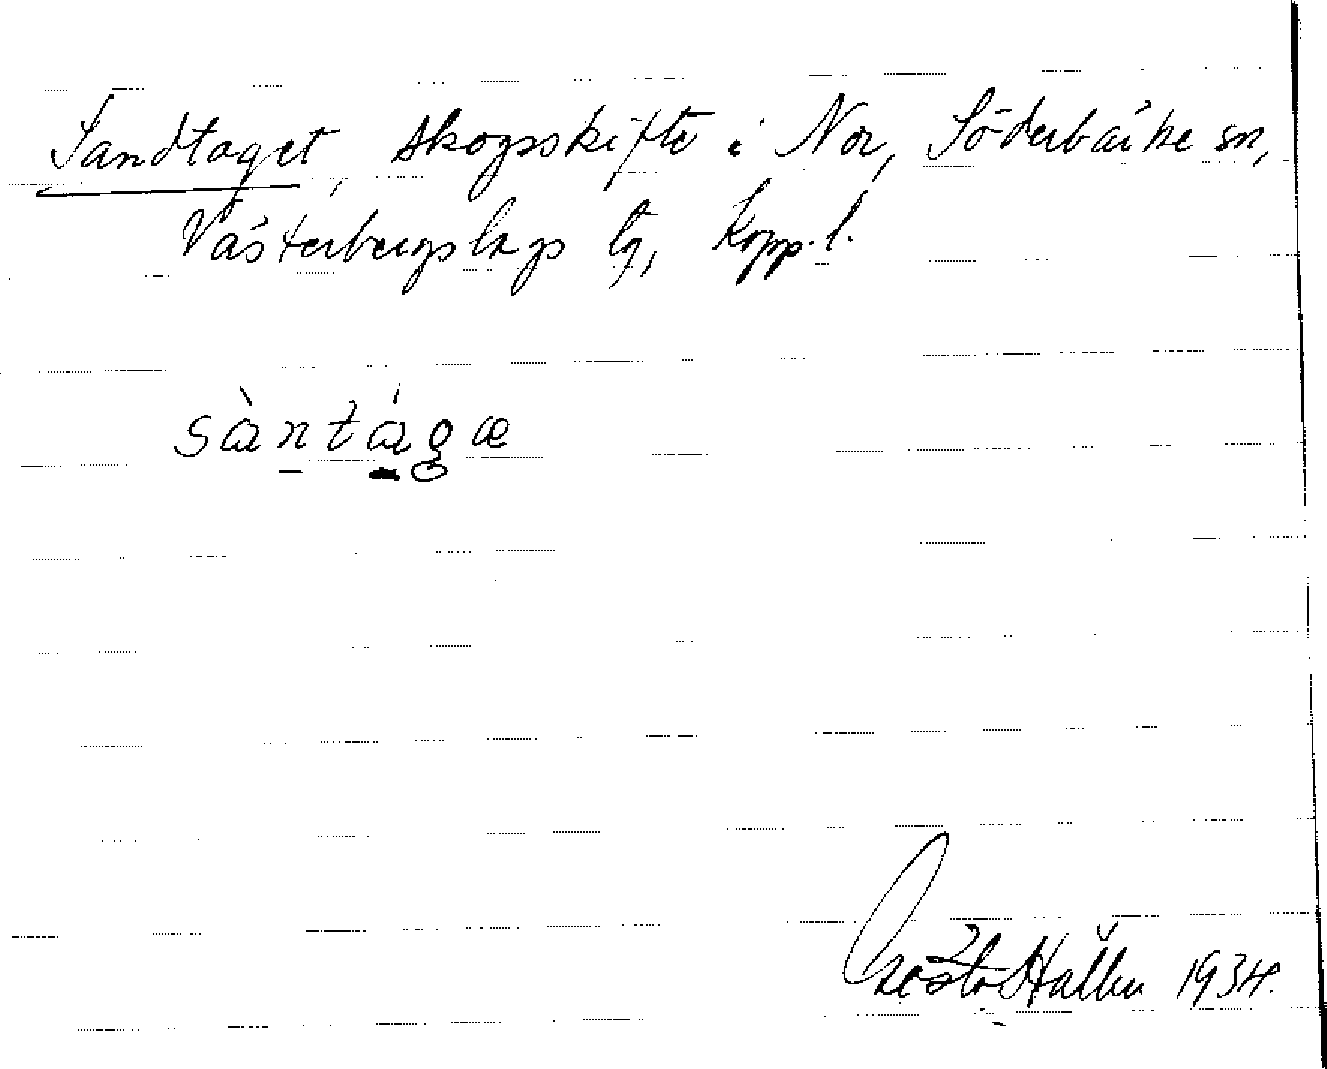 Sandtaget, skogsskifte i Nor, Söderbärke sn,
Västerbergslags tg, Kopp. l.
sàntágæ
1934.